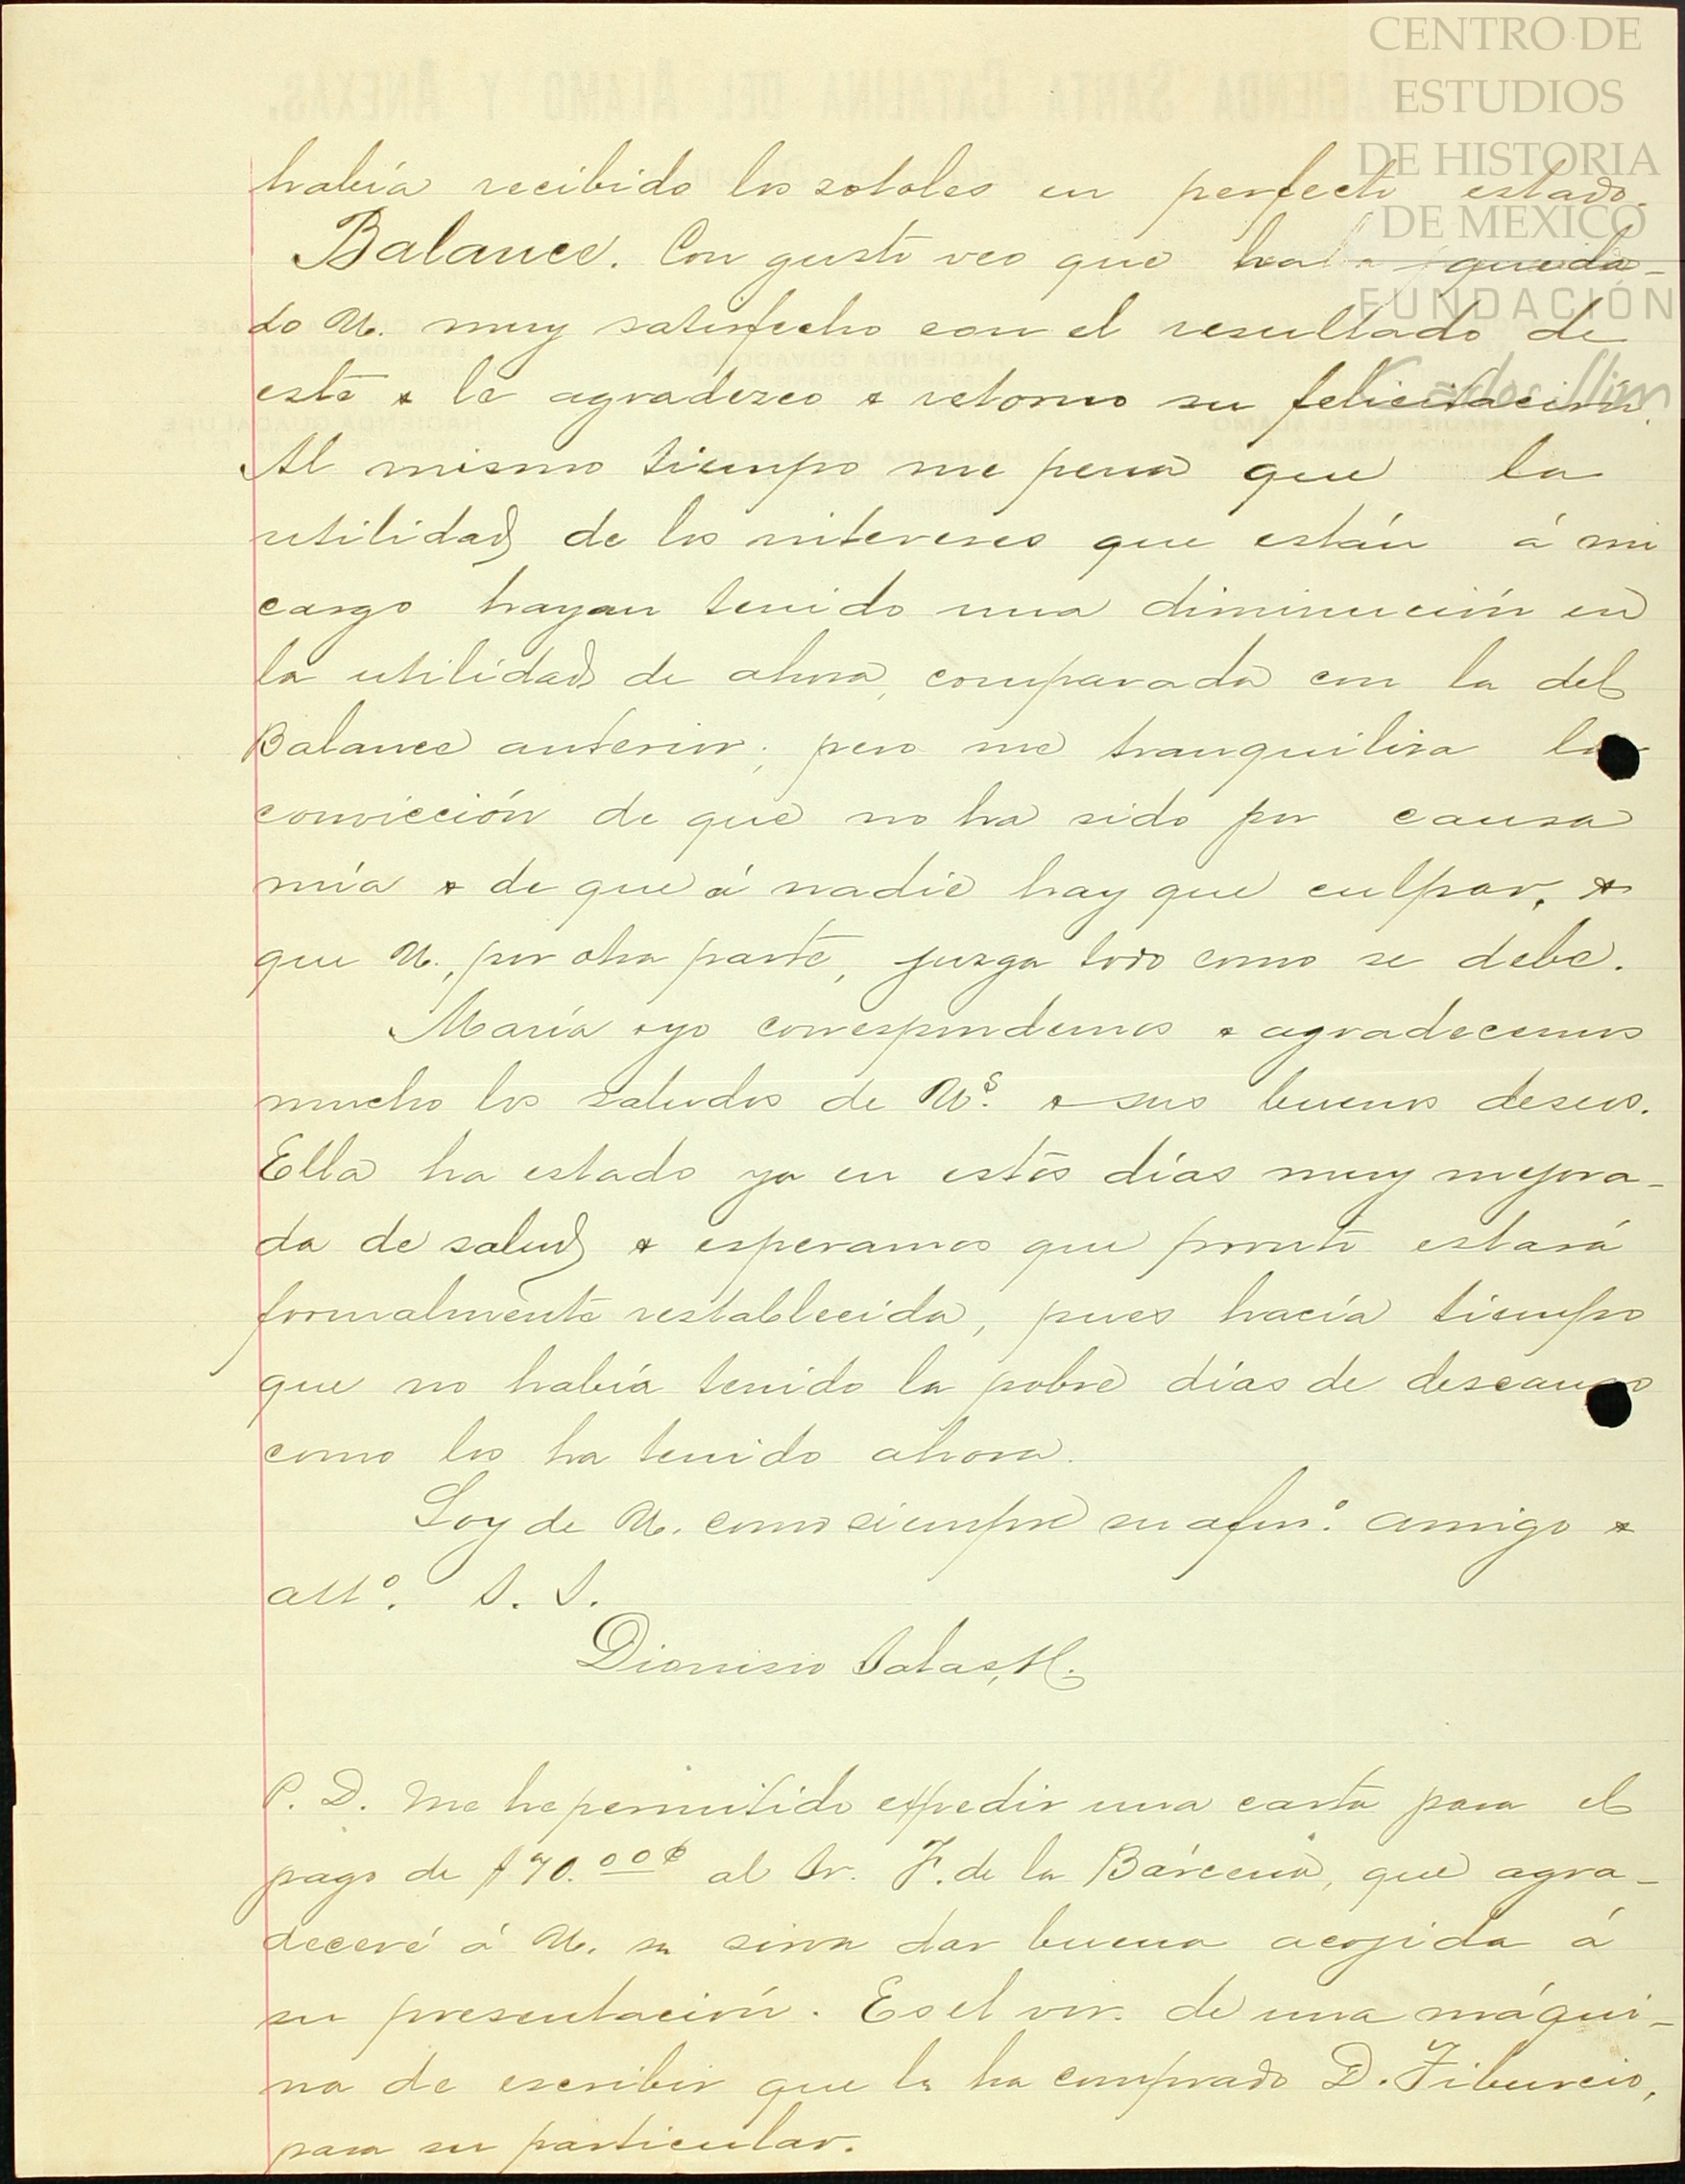 CENTRO DE
ESTUDIOS
DE HISTORIA
DE MEXICO
FUNDACIÓN
había recibido los sotoles en perfecto estado.
Balance. Con gusto veo que ha queda-
do U. muy satisfecho con el resultado de
este & le agradezco & retorno su felicitación.
Al mismo tiempo me pena que la
utilidad de los intereses que están á mi
cargo hayan tenido una diminución en
la utilidad de ahora, comparada con la del
Balance anterior; pero me tranquiliza la
convicción de que no ha sido por causa
mía & de que á nadie hay que culpar, &
que U., por otra parte, juzga todo como se debe.
María & yo correspondemos & agradecemos
mucho los saludos de Us. & sus buenos deseos.
Ella ha estado ya en estos días muy mejora-
da de salud & esperamos que pronto estará
formalmente restablecida, pues hacía tiempo
que no había tenido la pobre días de descanso
como los ha tenido ahora.
Soy de U. como siempre su afmo. amigo &
atto. S. S.
Dionisio Salas, H.
P. D. Me he permitido expedir una carta para el
pago de $70.00 al Sr. F. de la Bárcena, que agra-
deceré á U. se sirva dar buena acojida á
su presentación. Es el vor. de una máqui-
na de escribir que le ha comprado D. Tiburcio,
para su particular.